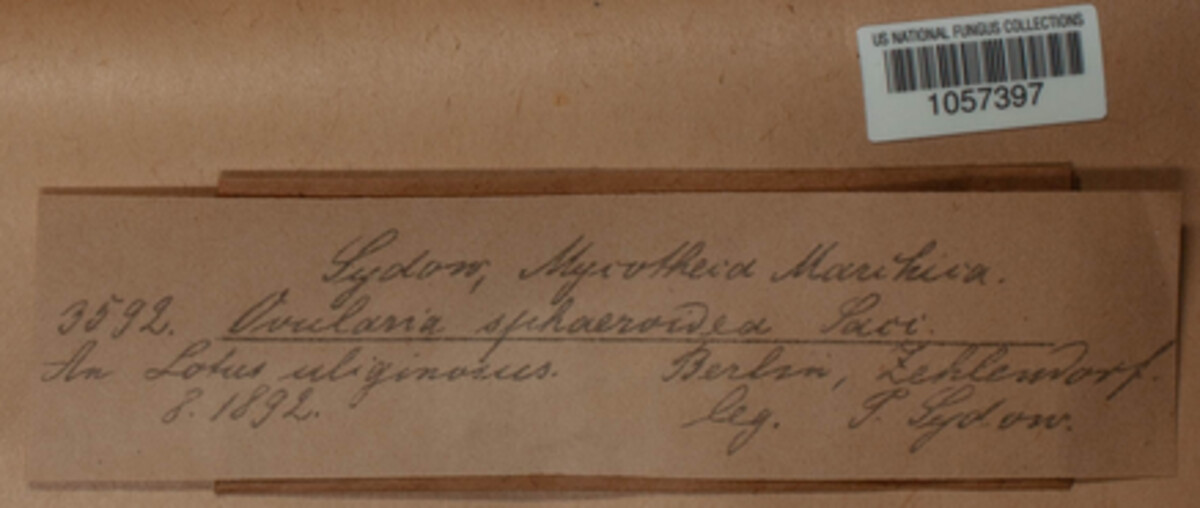 US NATIONAL FUNGUS COLLECTIONS
1057397
Sydow, Mycotheca Marchica.
3592. Ovularia sphaeroidea Sacc.
An Lotus uliginosus. Berlin, Zehlendorf.
8. 1892. leg. P. Sydow.